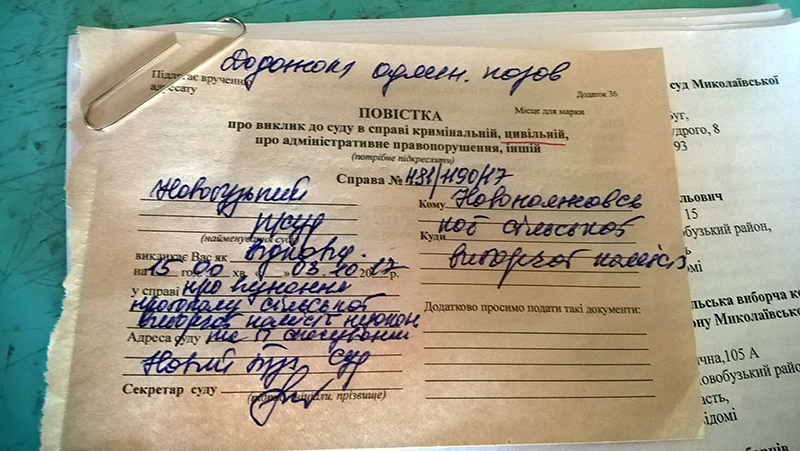 Додаток адмін. позов
Підлягає врученню
адресату
Додаток 36
ПОВІСТКА
Місце для марки
про виклик до суду в справі кримінальній, цивільній,
про адміністративне правопорушення, іншій
(потрібне підкреслити)
Справа № 481/1190/17
Новобузький
р/суд
(найменування суду)
викликає Вас як відповід.
на 15 год. 00 хв. » 03.10 2017 р.
у справі про визнання
протоколу сільської
виборчої комісії
Адреса суду та її скасування
Новий Буг суд
Секретар суду
(підпис, ініціали, прізвище)
Кому
сь
кої сільської
Куди
виборчої комісії
Додатково просимо подати такі документи:
суд Миколаївської
Буг,
8
93
льович
15
обузький район,
омі
льська виборча ко
ону Миколаївсько
ична,105 А
овобузький райо
асть,
відомі